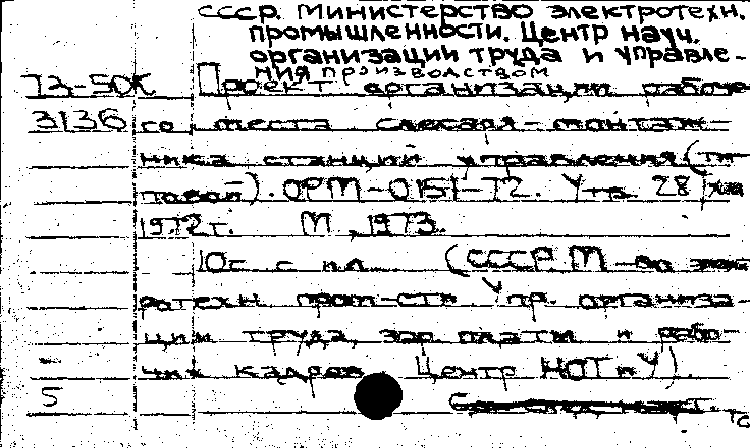 СССР. Министерство электротехн.
промышленности. Центр науч.
организации труда и управле-
ния производством
73-50К Проект организации рабоче-
3136 го места слесаря-монтаж-
ника станции управления (ти-
повой). ОРМ-0151-72. Утв. 28/
1972г. М., 1973.
10с. с ил. (СССР. М-во элект-
ротехн. пром-сти. Упр. организа-
ции труда, зар. платы и рабо-
чих кадров. Центр НОТиУ).
5